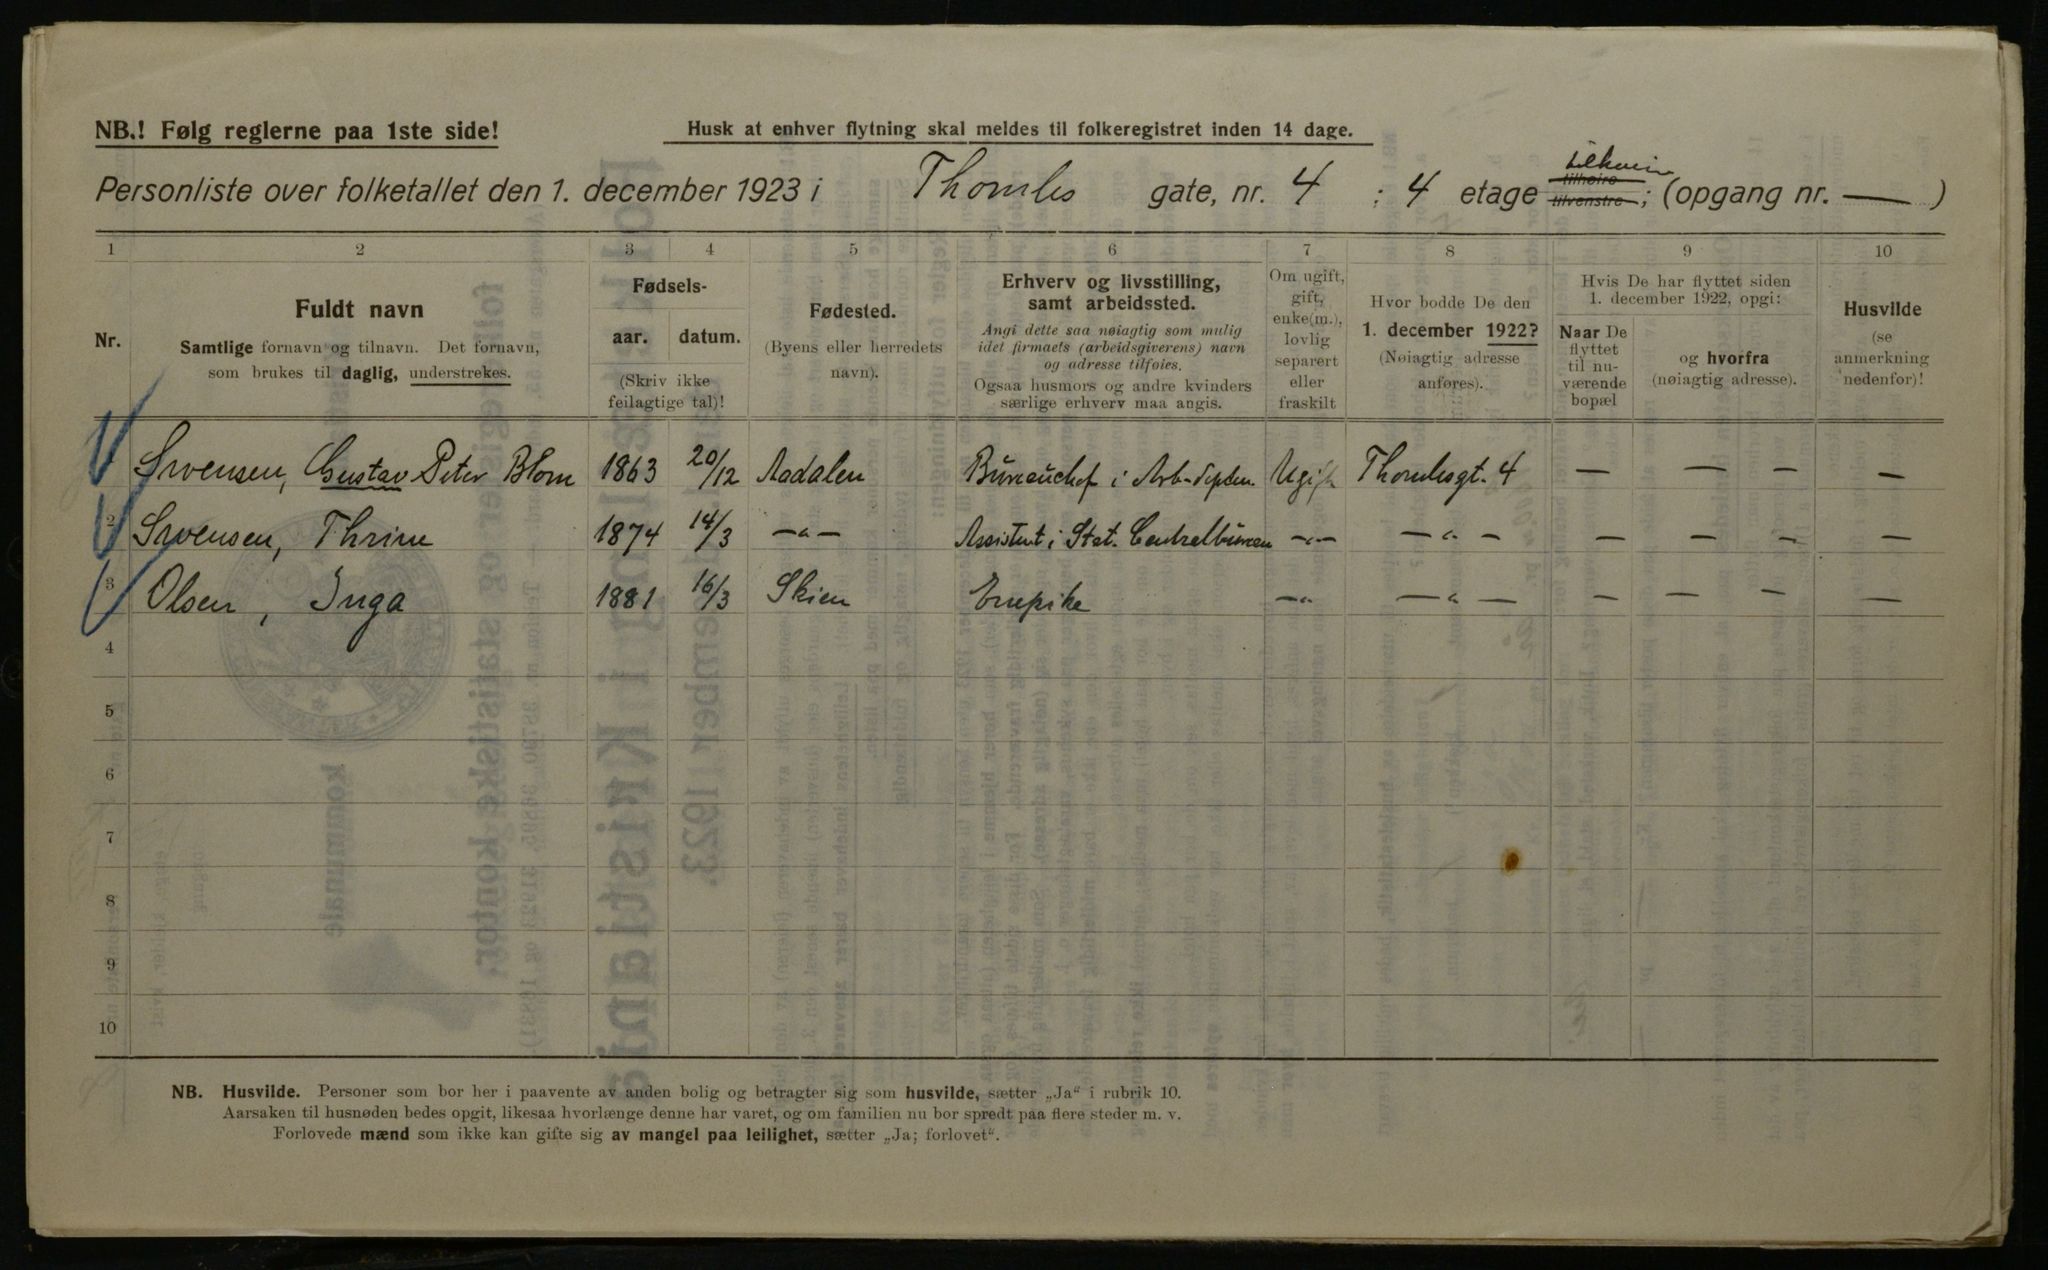 NB.! Følg reglerne paa 1ste side!
Husk at enhver flytning skal meldes til folkeregistret inden 14 dage.
Personliste over folketallet den 1. december 1923 i Thomles gate, nr. 4 ; 4 etage tilhøire tilvenstre ; (opgang nr. — )
1 2 3 4 5 6 7 8 9 10
Nr.
Fuldt navn
Samtlige fornavn og tilnavn. Det fornavn,
som brukes til daglig, understrekes.
Fødsels-
aar. datum.
(Skriv ikke
feilagtige tal)!
Fødested.
(Byens eller herredets
navn).
Erhverv og livsstilling,
samt arbeidssted.
Angi dette saa nøiagtig som mulig
idet firmaets (arbeidsgiverens) navn
og adresse tilføies.
Ogsaa husmors og andre kvinders
særlige erhverv maa angis.
Om ugift,
gift,
enke(m.),
lovlig
separert
eller
fraskilt
Hvor bodde De den
1. december 1922?
(Nøiagtig adresse
anføres).
Hvis De har flyttet siden
1. december 1922, opgi:
Naar De
flyttet
til nu-
værende
bopæl
og hvorfra
(nøiagtig adresse).
Husvilde
(se
anmerkning
nedenfor)!
Svensen, Gustav Peter Blom 1863 20/12 Aadalen Bureauchef i Arb-depten. Ugift Thomlesgt. 4 — — — —
2 Svensen, Thrine 1874 14/3 —"— Assistent i Stat. Centralbureau —"— —"— — — — —
3 Olsen, Inga 1881 16/3 Skien Enepike —"— —"— — — — —
4
5
6
7
8
9
10
NB. Husvilde. Personer som bor her i paavente av anden bolig og betragter sig som husvilde, sætter „Ja“ i rubrik 10.
Aarsaken til husnøden bedes opgit, likesaa hvorlænge denne har varet, og om familien nu bor spredt paa flere steder m. v.
Forlovede mænd som ikke kan gifte sig av mangel paa leilighet, sætter „Ja; forlovet“.